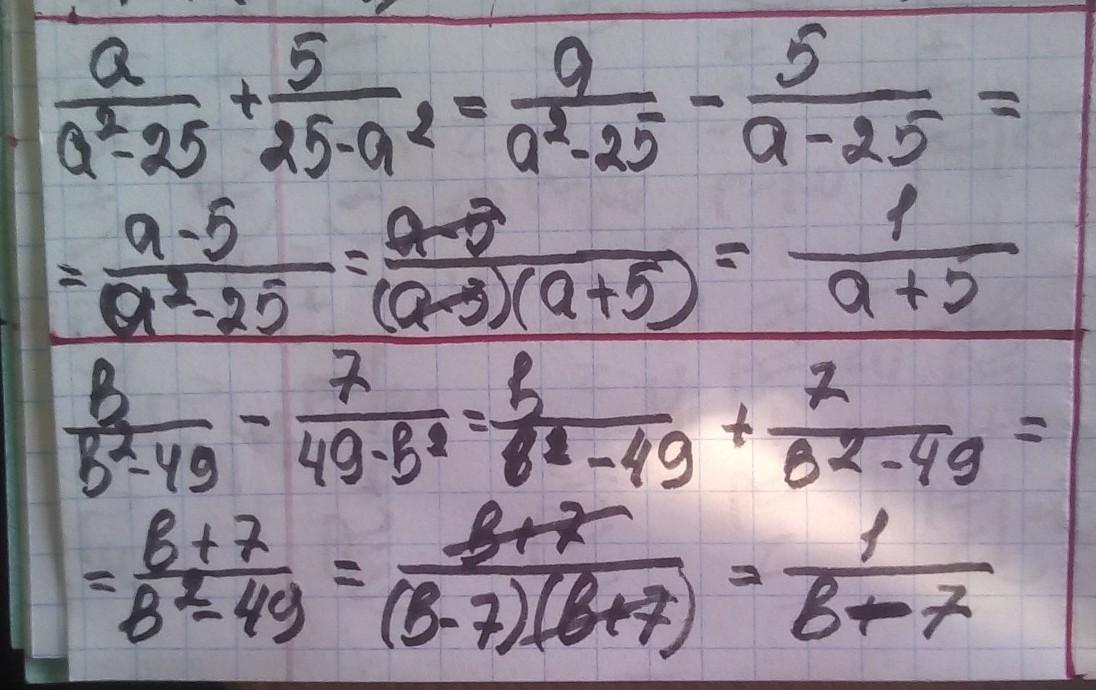 a/(a²-25) + 5/(25-a²) = a/(a²-25) - 5/(a-25) =
= (a-5)/(a²-25) = (a-5)/((a-5)(a+5)) = 1/(a+5)
в/(в²-49) - 7/(49-в²) = в/(в²-49) + 7/(в²-49) =
= (в+7)/(в²-49) = (в+7)/((в-7)(в+7)) = 1/(в-7)